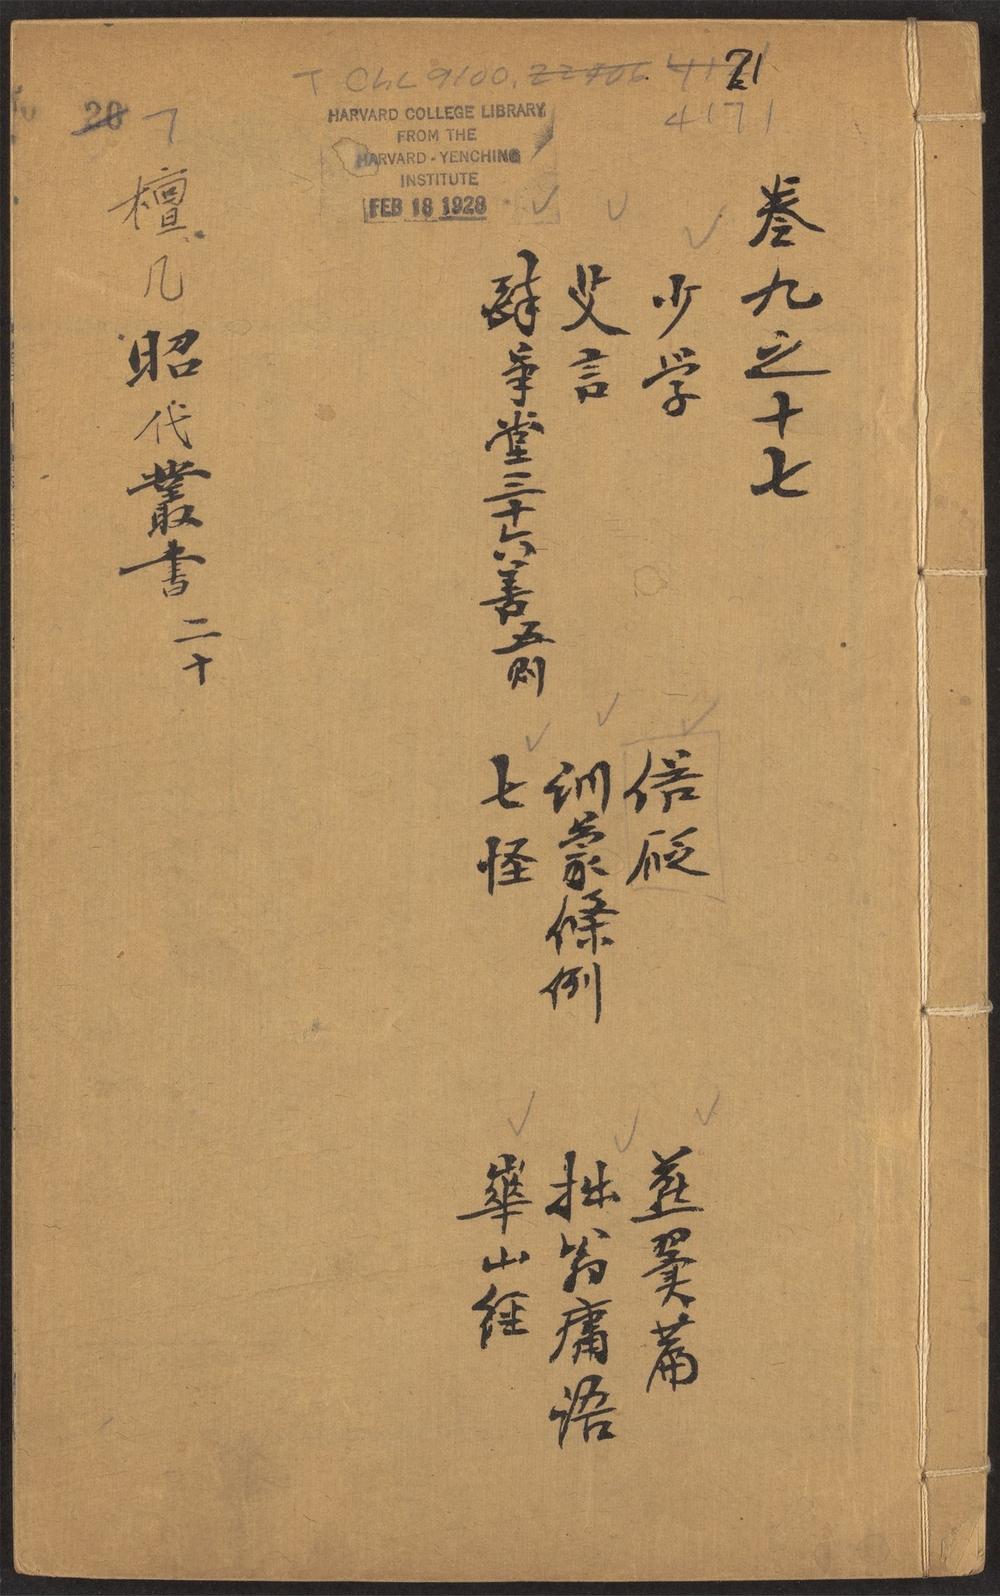 T Chl 9100. 22406 4171
21
4171
HARVARD COLLEGE LIBRARY
FROM THE
HARVARD-YENCHING
INSTITUTE
FEB 18 1928
20 7
卷九之十七
少学
俗砭
燕翼篇
艾言
訓蒙條例
拙翁庸語
醉筆堂三十六善五則
七怪
華山經
檀几
昭代叢書 二十